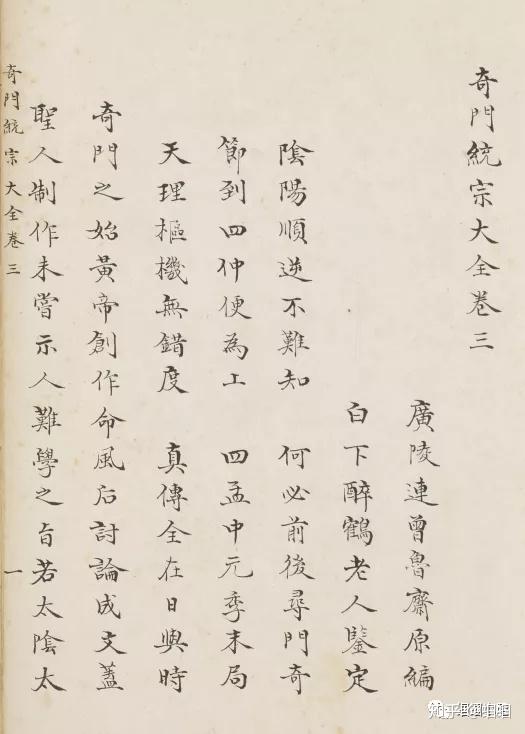 奇門統宗大全卷三
廣陵連曾魯齋原編
白下醉鶴老人鑒定
陰陽順逆不難知　何必前後尋門奇
節到四仲便為上　四孟中元季末局
天理樞機無錯度　真傳全在日與時
奇門之始黃帝創作命風后討論成文蓋
聖人制作未嘗示人難學之旨若太陰太
奇門統宗大全卷三　一
知乎